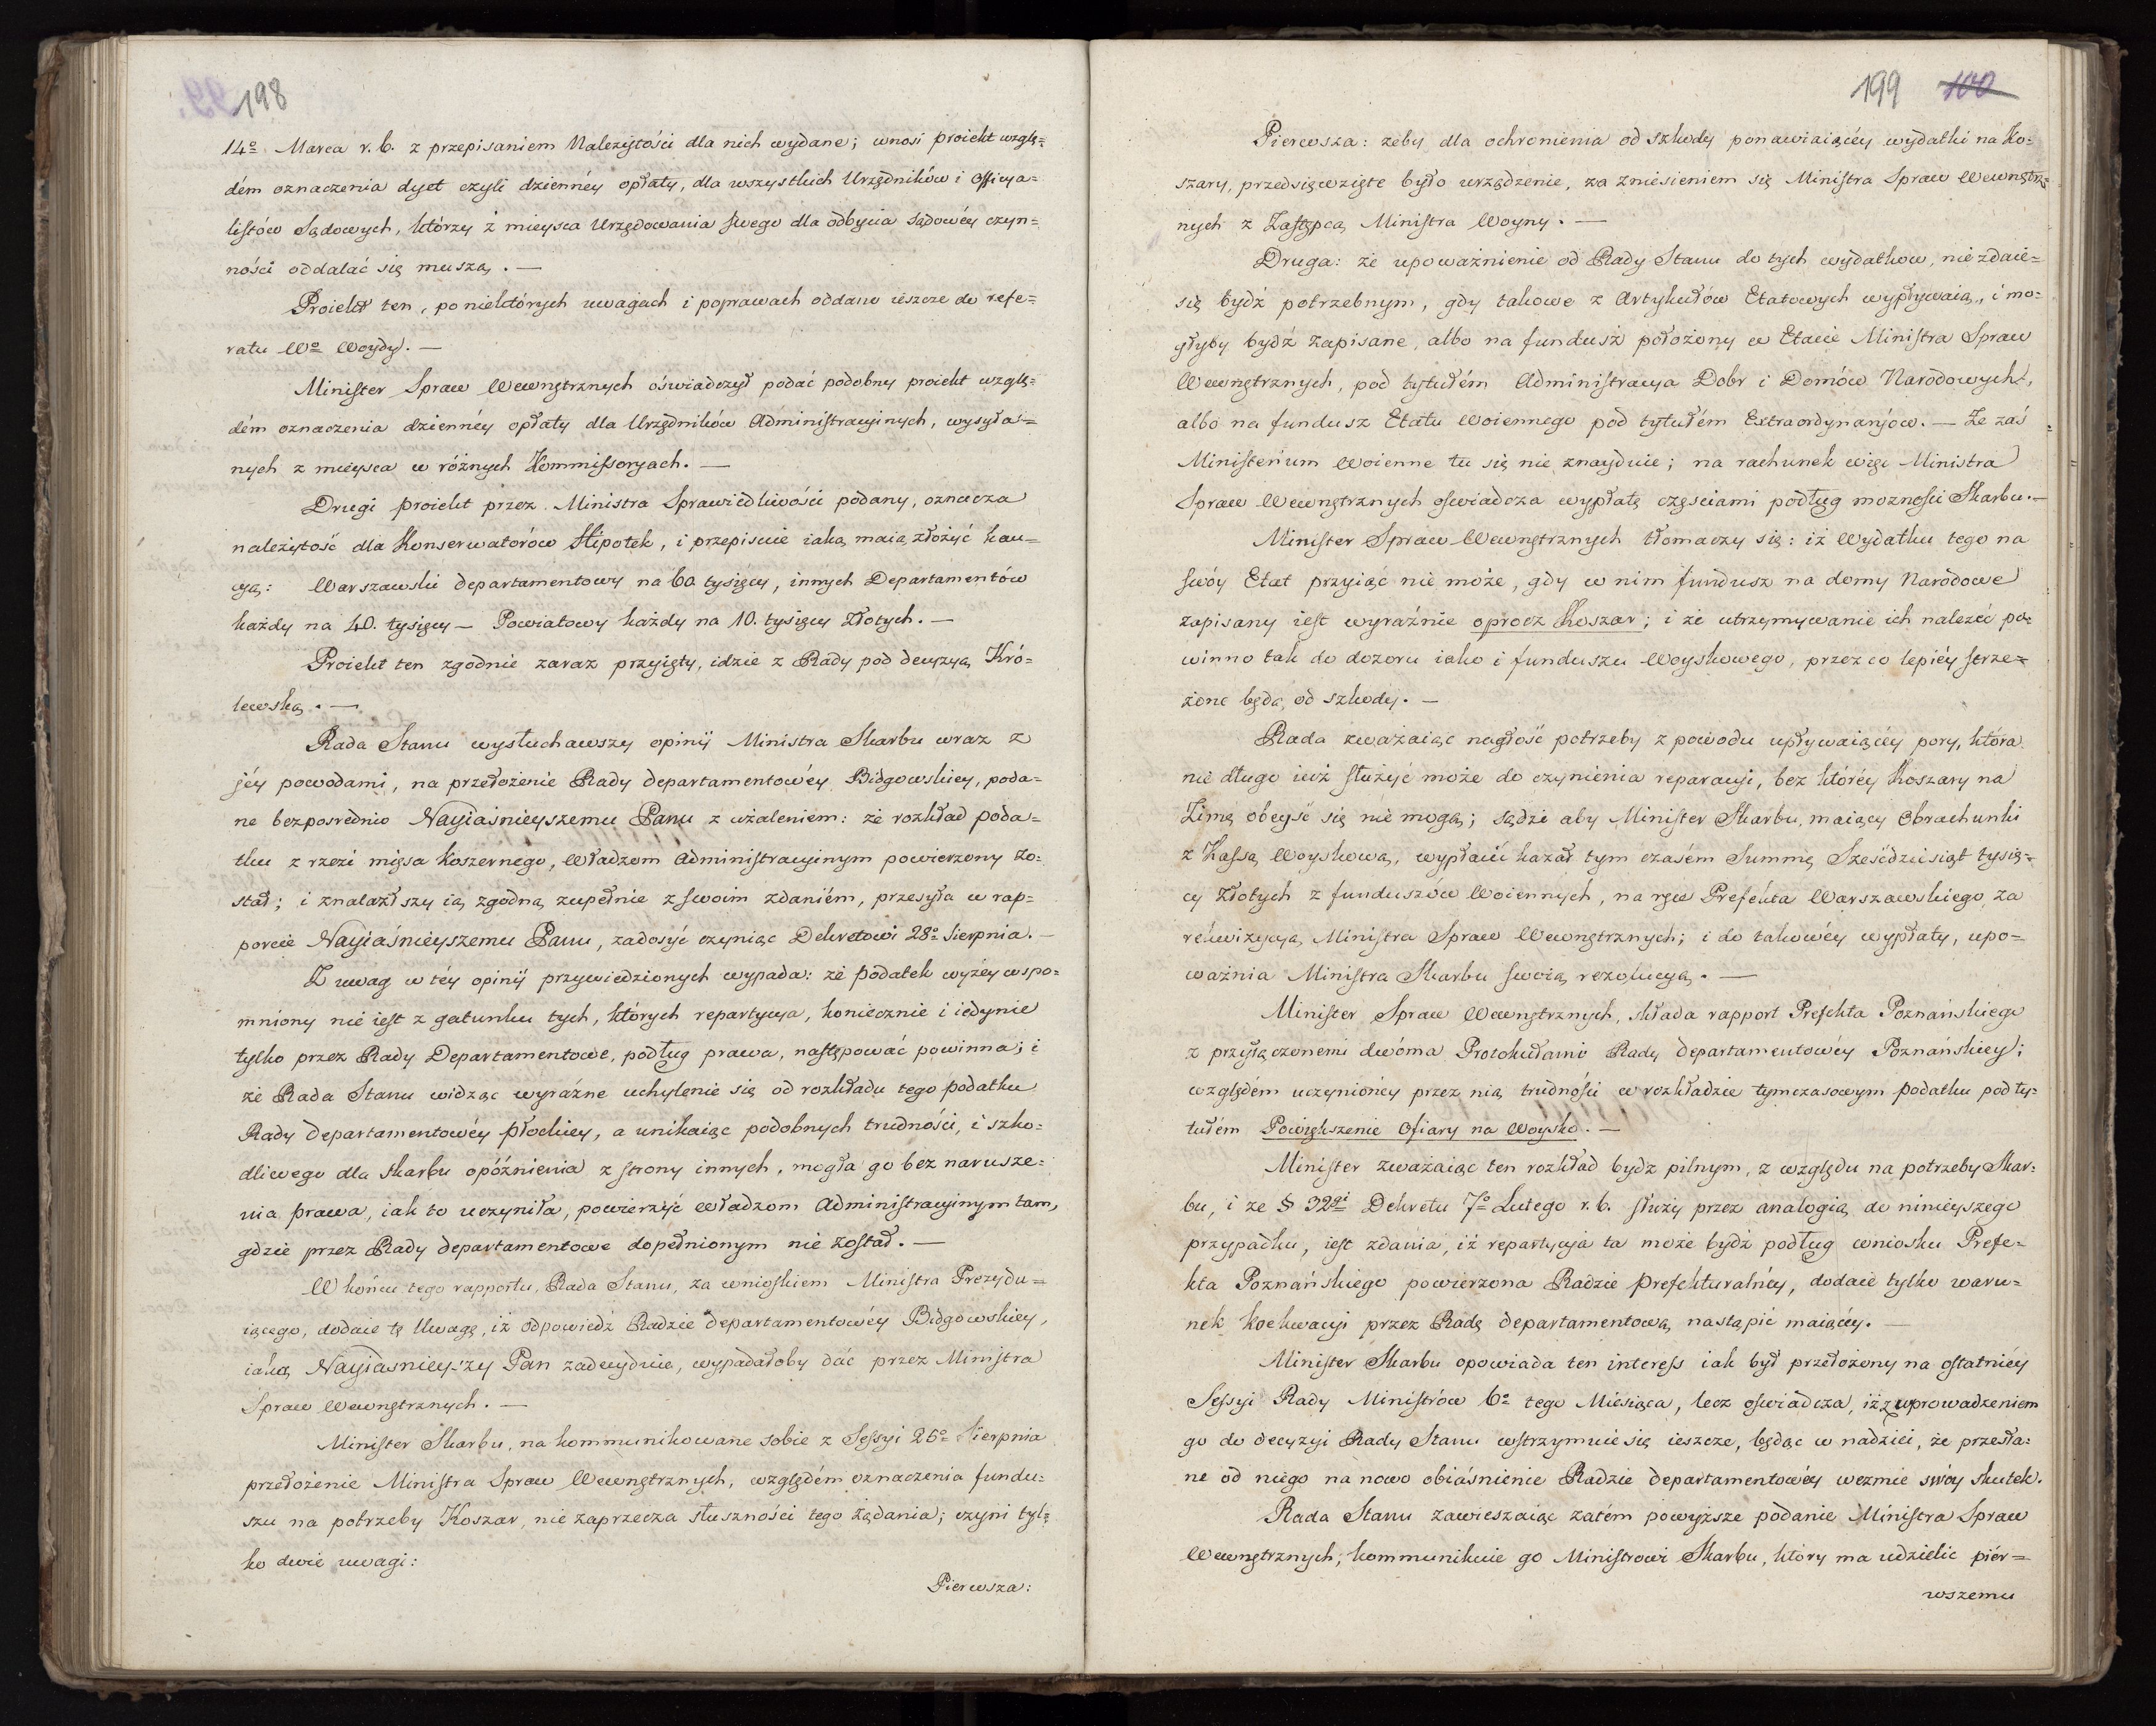 198
14º Marca r. b. z przepisaniem Należytości dla nich wydane; wnosi proiekt wzglę=
dém oznaczenia dyet czyli dziennéy opłaty, dla wszystkich Urzędników i Officya=
listów Sądowych, którzy z mieysca Urzędowania swego dla odbycia sądowéy czyn=
ności oddalać się muszą. —
Proiekt ten, po niektórych uwagach i poprawach oddano ieszcze do refe=
ratu Wº Woydy. —
Minister Spraw Wewnętrznych oświadczył podać podobny proiekt wzglę=
dém oznaczenia dziennéy opłaty dla Urzędników Administracyinych, wysyła=
nych z mieysca w różnych Kommissoryach. —
Drugi proiekt przez Ministra Sprawiedliwości podany, oznacza
należytość dla Konserwatorów Hipotek, i przepisuie iaką maią złożyć kau=
cyą: Warszawski departamentowy na 60 tysięcy, innych Departamentów
każdy na 40. tysięcy — Powiatowy każdy na 10. tysięcy Złotych. —
Proiekt ten zgodnie zaraz przyięty, idzie z Rady pod decyzyą Kró=
lewską. —
Rada Stanu wysłuchawszy opinij Ministra Skarbu wraz z
jéy powodami, na przełożenie Rady departamentowéy Bidgowskiey, poda=
ne bezposrednio Nayiaśnieyszemu Panu z użaleniem: że rozkład poda=
tku z rzezi mięsa koszernego, Władzom Administracyinym powierzony zo=
stał; i znalazłszy ią zgodną zupełnie z swoim zdaniém, przesyła w rap=
porcie Nayiaśnieyszemu Panu, zadosyć czyniąc Dekretowi 28º Sierpnia. —
Z uwag w téy opinij przywiedzionych wypada: że podatek wyżéy wspo=
mniony nie iest z gatunku tych, których repartycya, koniecznie i iedynie
tylko przez Rady Departamentowe, podług prawa, następować powinna; i
że Rada Stanu widząc wyraźne uchylenie się od rozkładu tego podatku
Rady departamentowéy Płockiey, a unikaiąc podobnych trudności, i szko=
dliwego dla skarbu opóźnienia z strony innych, mogła go bez narusze=
nia prawa, iak to uczyniła, powierzyć władzom Administracyinym tam,
gdzie przez Rady departamentowe dopełnionym nie został. —
W końcu tego rapportu, Rada Stanu, za wnioskiem Ministra Prezydu=
iącego, dodaie tę Uwagę, iż odpowiedź Radzie departamentowéy Bidgowskiey,
iaką Nayiasnieyszy Pan zadecyduie, wypadałoby dać przez Ministra
Spraw Wewnętrznych. —
Minister Skarbu, na kommunikowane sobie z Sessyi 25º Sierpnia
przełożenie Ministra Spraw Wewnętrznych, względém oznaczenia fundu=
szu na potrzeby Koszar, nie zaprzecza słuszności tego żądania; czyni tyl=
ko dwie uwagi:
Pierwsza:
199 100
Pierwsza: żeby dla ochronienia od szkody ponawiaiącéy wydatki na Ko=
szary, przedsięwzięte było urządzenie, za zniesieniem się Ministra Spraw Wewnętrz=
nych z Zastępcą Ministra Woyny. —
Druga: że upoważnienie od Rady Stanu do tych wydatkow, nie zdaie=
się bydź potrzebnym, gdy takowe z Artykułów Etatowych wypływaią, i mo=
głyby bydź zapisane, albo na fundusz położony w Etacie Ministra Spraw
Wewnętrznych, pod tytułém Administracya Dobr i Domów Narodowych,
albo na fundusz Etatu Woiennego pod tytułém Extraordynaryów. — Że zaś
Ministerium Woienne tu się nie znayduie; na rachunek więc Ministra
Spraw Wewnętrznych oświadcza wypłatę częściami podług możności Skarbu. —
Minister Spraw Wewnętrznych tłomaczy się: iż Wydatku tego na
swóy Etat przyiąć nie może, gdy w nim fundusz na domy Narodowe
zapisany iest wyraźnie oprocz Koszar; i że utrzymywanie ich należeć po=
winno tak do dozoru iako i funduszu Woyskowego, przez co lepiéy strze=
żone będą od szkody. —
Rada zważaiąc nagłość potrzeby z powodu upływaiącéy pory, która
nie długo iuż służyć może do czynienia reparacyi, bez któréy Koszary na
Zimę obeyść się nie mogą; sądzi aby Minister Skarbu, maiący Obrachunki
z Kassą Woyskową, wypłacić kazał tym czasém Summę Sześćdziesiąt tysię=
cy Złotych z funduszów Woiennych, na ręce Prefekta Warszawskiego, za
rekwizycyą Ministra Spraw Wewnętrznych; i do takowéy wypłaty, upo=
ważnia Ministra Skarbu swoią rezolucyą. —
Minister Spraw Wewnętrznych, składa rapport Prefekta Poznańskiego
z przyłączonemi dwóma Protokułami Rady departamentowéy Poznańskiey;
względém uczynionéy przez nią trudności w rozkładzie tymczasowym podatku pod ty=
tułém Powiększenie Ofiary na Woysko. —
Minister zważaiąc ten rozkład bydz pilnym, z względu na potrzeby Skar=
bu, i że § 32gi Dekretu 7º Lutego r. b. służy przez analogią do ninieyszego
przypadku, iest zdania, iż repartycya ta może bydź podług wniosku Prefe=
kta Poznańskiego powierzona Radzie prefekturalnéy, dodaie tylko waru=
nek koekwacyi przez Radę departamentową nastąpić maiącéy. —
Minister Skarbu opowiada ten interess iak był przełożony na ostatniéy
Sessyi Rady Ministrów 6º tego Miesiąca, lecz oświadcza, iż z uprowadzeniem
go do decyzyi Rady Stanu wstrzymuie się ieszcze, będąc w nadziei, że przesła=
ne od niego na nowo obiaśnienie Radzie departamentowéy wezmie swóy skutek.
Rada Stanu zawieszaiąc zatém powyższe podanie Ministra Spraw
Wewnętrznych, kommunikuie go Ministrowi Skarbu, który ma udzielic piér=
wszemu